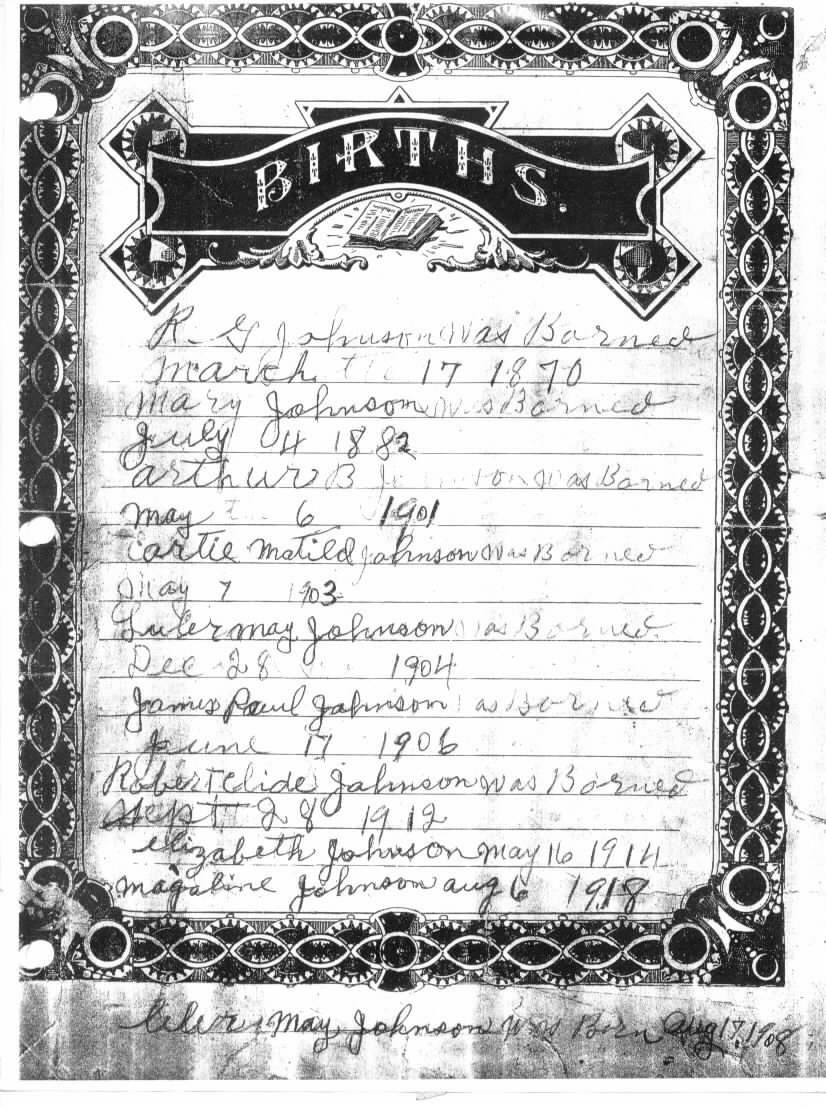 BIRTHS.
R. G Johnson was Borned
March 17 1870
Mary Johnson was Borned
July 04 1882
arthur B Johnson was Borned
may 6 1901
Cartie Matild Johnson was Borned
May 7 1903
may Johnson was Borned
Dec 28 1904
James Paul Johnson was Borned
June 17 1906
Robert Clide Johnson was Borned
Sept 28 1912
elizabeth Johnson may 16 1914
magaline Johnson aug 6 1918
May Johnson was Born Aug 17, 1908